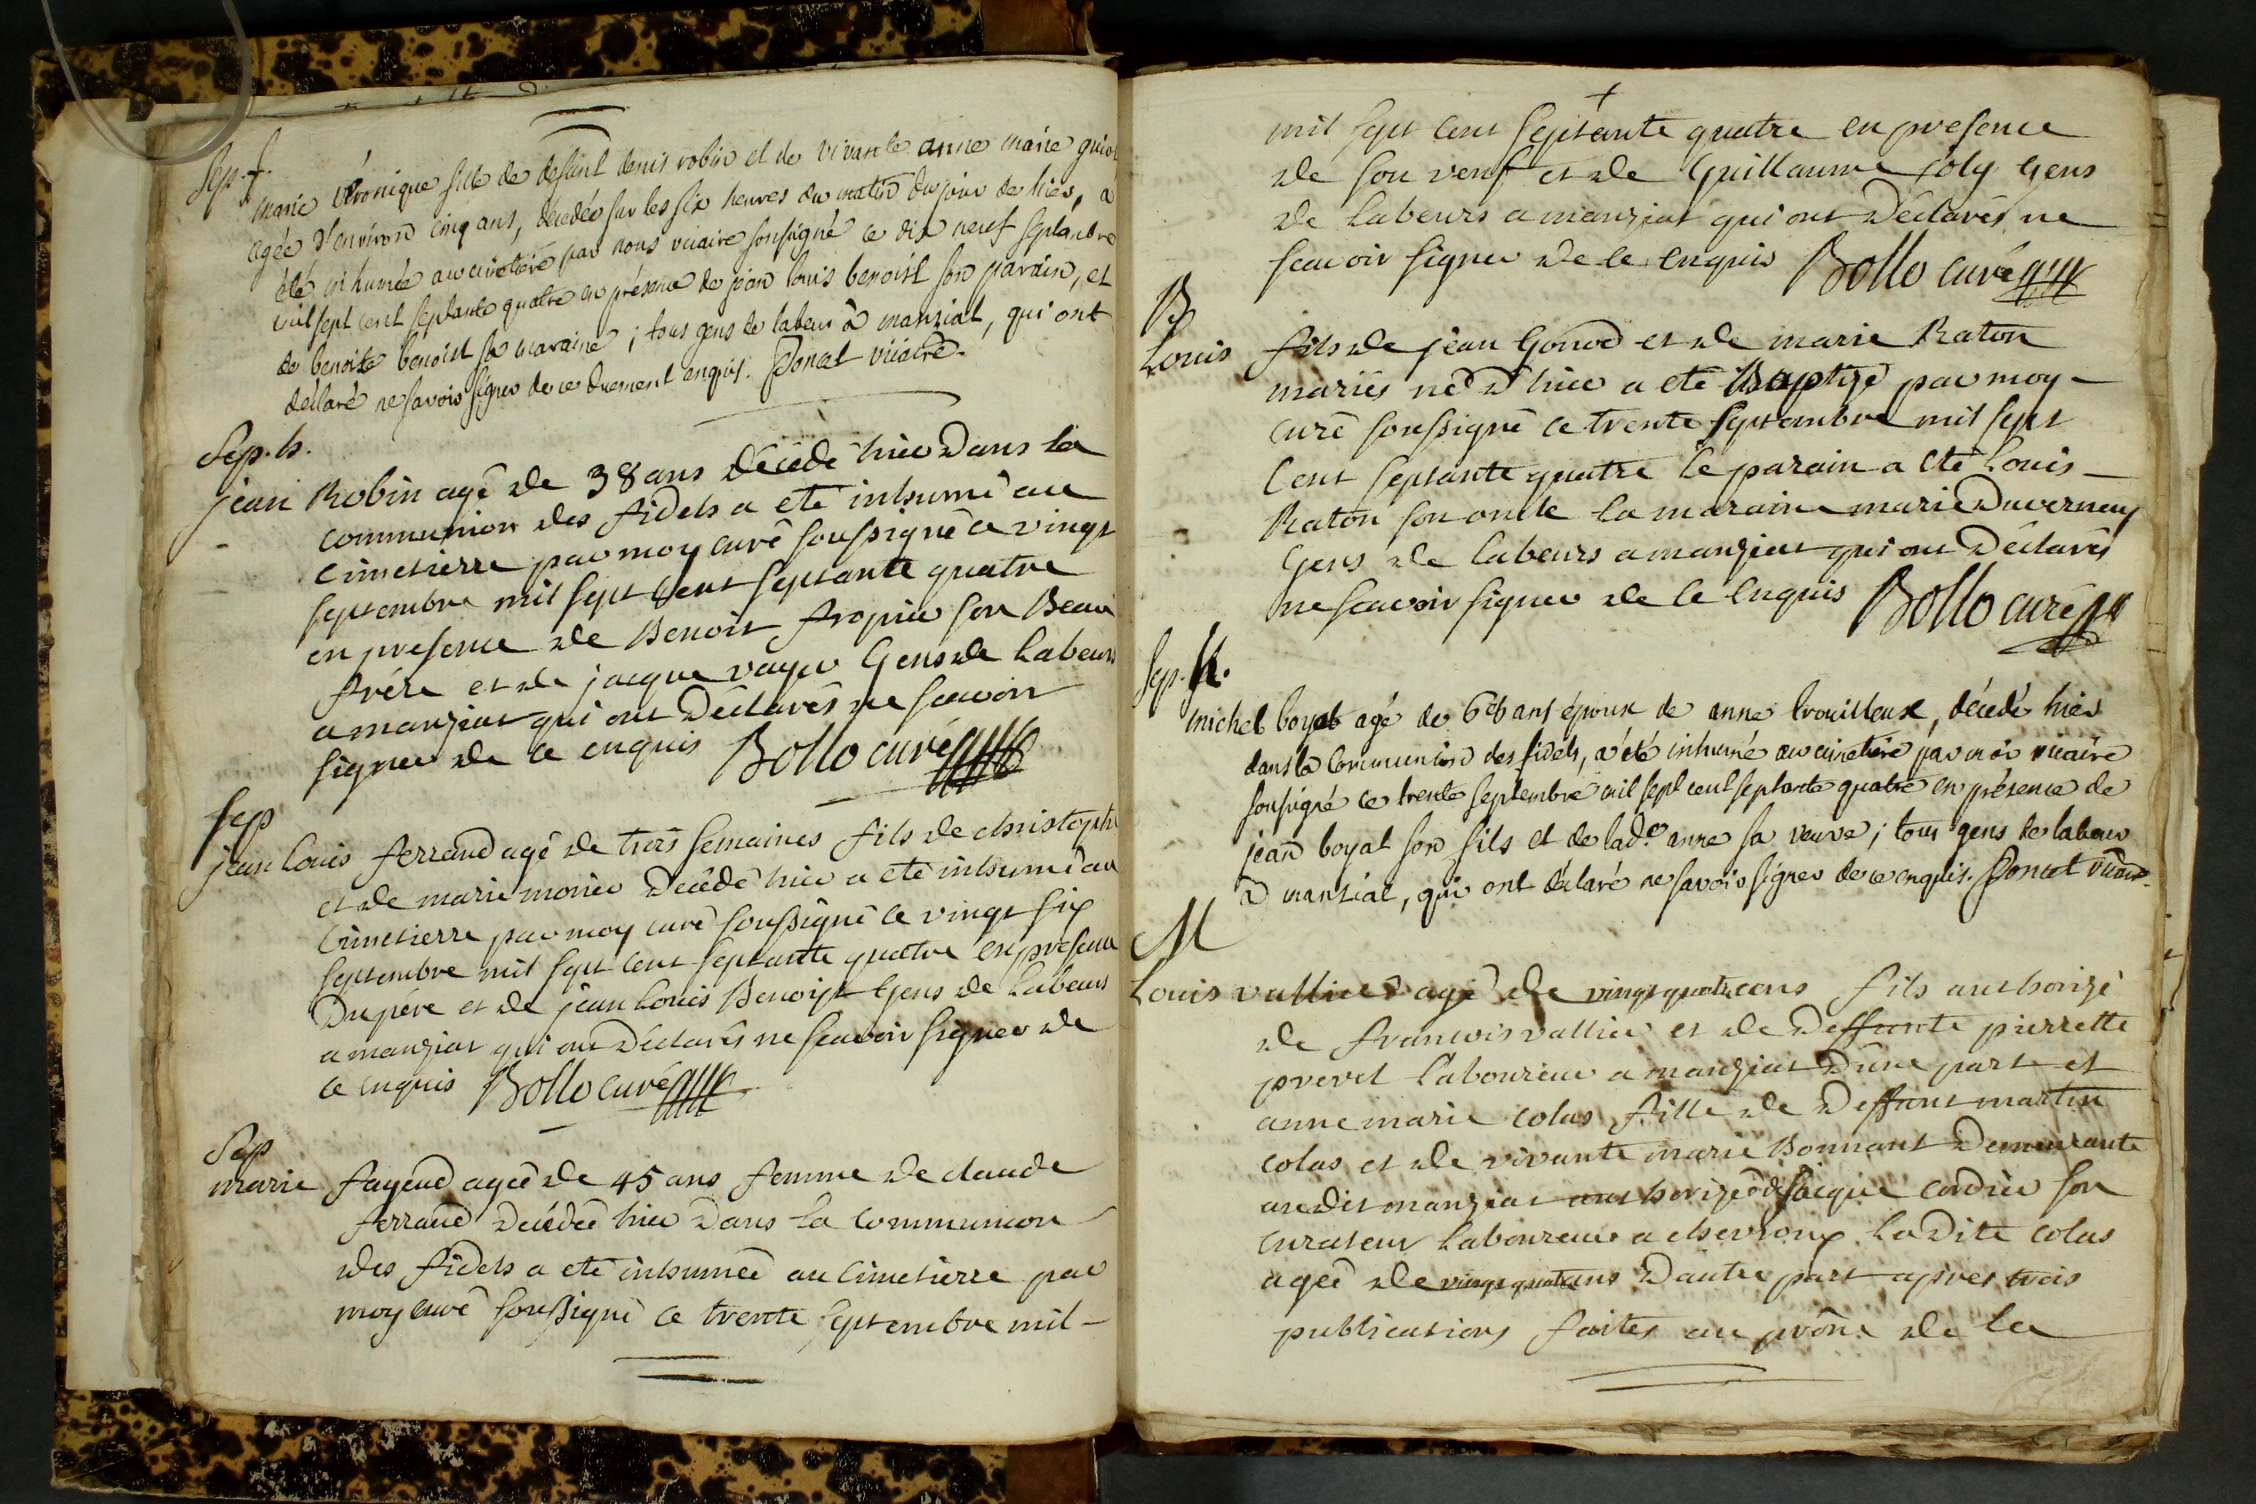 Sep. f.
marie véronique fille de defunt denis robin et de vivante anne marie guiot
agée d'environ cinq ans, decedée sur les six heures du matin du jour de hier, a
été inhumée au cimetiére par nous vicaire sousigné ce dix neuf septembre
mil sept cent septante quatre en présence de jean louis benoist son parain, et
de benoite benoist sa maraine ; tous gens de labeur à manziat, qui ont
déclaré ne savoir signer de ce duement enquis. Poncet vicaire.
Sep. h.
jean Robin agé de 38 ans décédé hier dans la
communion des fidels a eté inhumé au
cimetierre par moy curé soussigné ce vingt
septembre mil sept cent septante quatre
en presence de Benoit fropier son Beau
frére et de jacque vayer Gens de Labeurs
a manziat qui ont déclarés ne scavoir
signer de ce enquis Bollo curé
Sep
jean Louis ferrand agé de trois semaines fils de christophe
et de marie monier decédé hier a eté inhumé au
Cimetierre par moy curé soussigné ce vingt six
septembre mil sept cent septante quatre en presence
Du pére et de jean Louis Benoist Gens de Labeurs
a manziat qui ont déclarés ne scavoir signer de
ce enquis Bollo curé
Sep
marie fayend agée de 45 ans femme de claude
ferrand decédée hier dans la communion
des fidels a eté inhumée au Cimetierre par
moy curé soussigné ce trente septembre mil
mil sept cent septante quatre en presence
de son veuf et de Guillaume joly Gens
de Labeurs a manziat qui ont déclarés ne
scavoir signer de ce enquis Bollo curé
B
Louis fils de jean Gonod et de marie Raton
mariés né d'hier a eté Baptizé par moy
curé soussigné ce trente septembre mil sept
Cent septante quatre le parain a eté Louis
Raton son oncle la maraine marie Duverney
Gens de labeurs a manziat qui ont déclarés
ne scavoir signer de ce enquis Bollo curé
Sep. h.
michel boyat agé de ans époux de anne trouilleux, décédé hier
dans la communion des fidels, a été inhumé au cimetiére par moi vicaire
sousigné ce trente septembre mil sept cent septante quatre en présence de
jean boyat son fils et de lad.e anne sa veuve ; tous gens de labeur
à manziat, qui ont déclaré ne savoir signer de ce enquis. Poncet vicaire.
M
Louis vallier agé de vingt quatre ans fils authorizé
de francois vallier et de deffunte pierrette
prevel laboureur a manziat d'une part et
anne marie colas fille de deffunt martin
colas et de vivante marie Bonnant demeurante
audit manziat authorizée de jacque cordier son
curateur laboureur a chevroux ladite colas
agée de vingt quatre ans dautre part apres trois
publications faites au prône de la